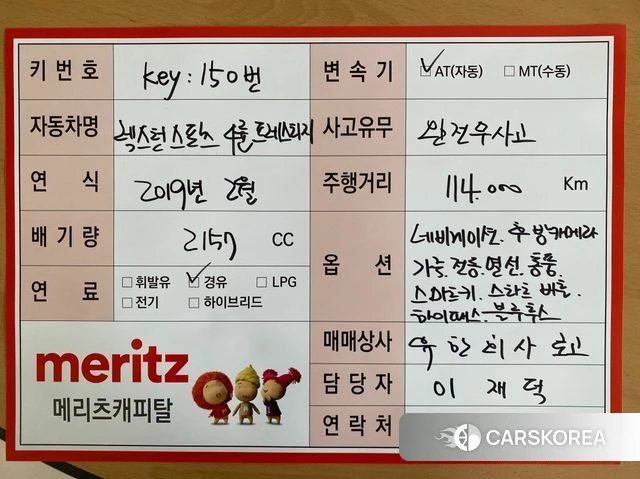 키 번 호 key : 150번 변 속 기 AT(자동) MT(수동)
자동차명 렉스턴스포츠 4륜 프레스티지 사고유무 완전무사고
연 식 2019년 2월 주행거리 114.000 Km
배 기 량 2157 CC
옵 션 네비게이션. 후방카메라
가죽.전동.열선.통풍.
스마트키. 스타트 버튼.
하이패스.블루투스
연 료 휘발유 경유 LPG
전기 하이브리드
매매상사
담 당 자 이 재 덕
연 락 처
meritz
메리츠캐피탈
CARSKOREA